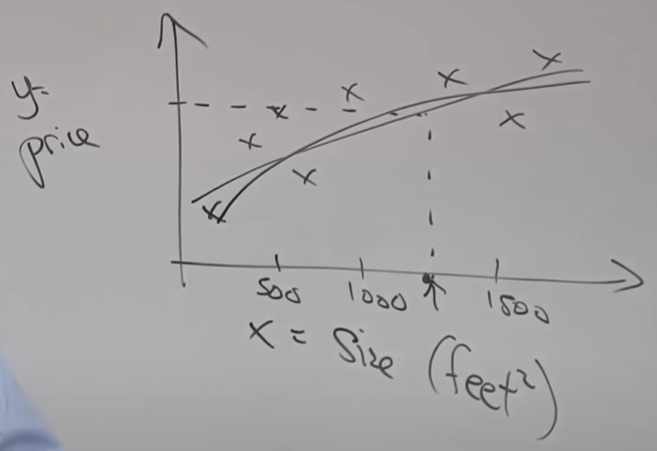 y=
price
500 1000 1500
x = Size (feet²)